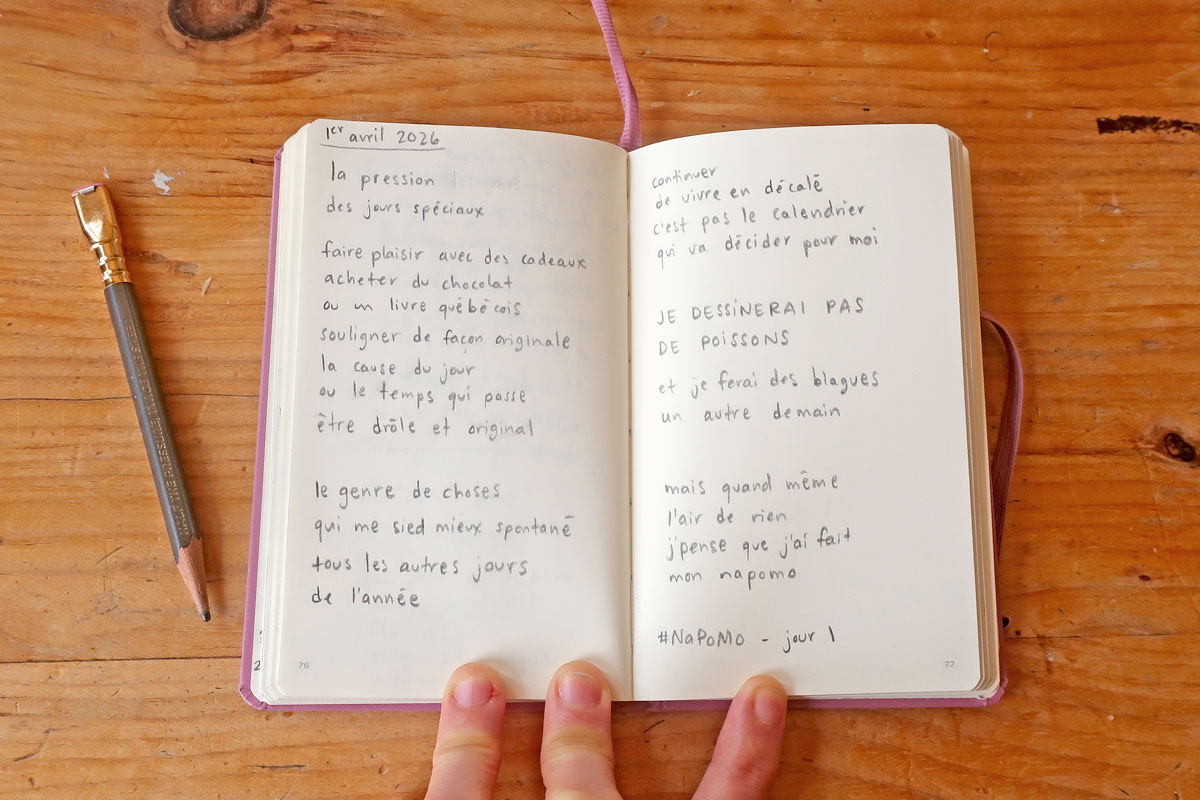 1er avril 2026
la pression
des jours spéciaux
faire plaisir avec des cadeaux
acheter du chocolat
ou un livre québécois
souligner de façon originale
la cause du jour
ou le temps qui passe
être drôle et original
le genre de choses
qui me sied mieux spontané
tous les autres jours
de l'année
76
continuer
de vivre en décalé
c'est pas le calendrier
qui va décider pour moi
JE DESSINERAI PAS
DE POISSONS
et je ferai des blagues
un autre demain
mais quand même
l'air de rien
j'pense que j'ai fait
mon napomo
#NaPoMo - jour 1
77
HALF THE PRESSURE, TWICE THE SPEED